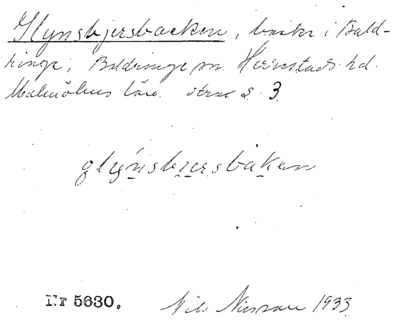 Glynsbjersbacken, backe i Bald-
ringe, Baldringe sn. Herrestads hd.
Malmöhus län. strax S. 3.
glýnsbjersbakan
Nr 5630.
Nils Nilsson 1933